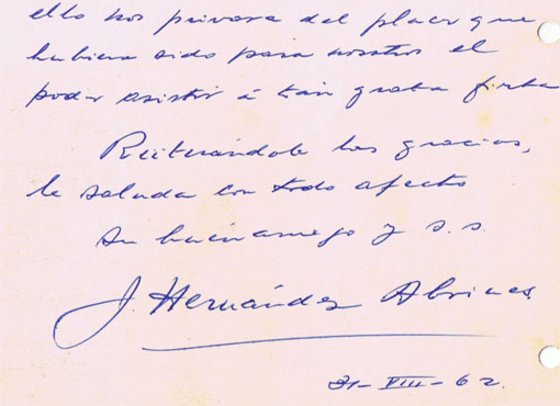 ello nos privara del placer que
hubiera sido para nosotros el
poder asistir á tan grata fiesta
Reiterándole las gracias,
le saluda con todo afecto
su buen amigo y s.s.
J. Hernández Abrines
21-VIII-62.